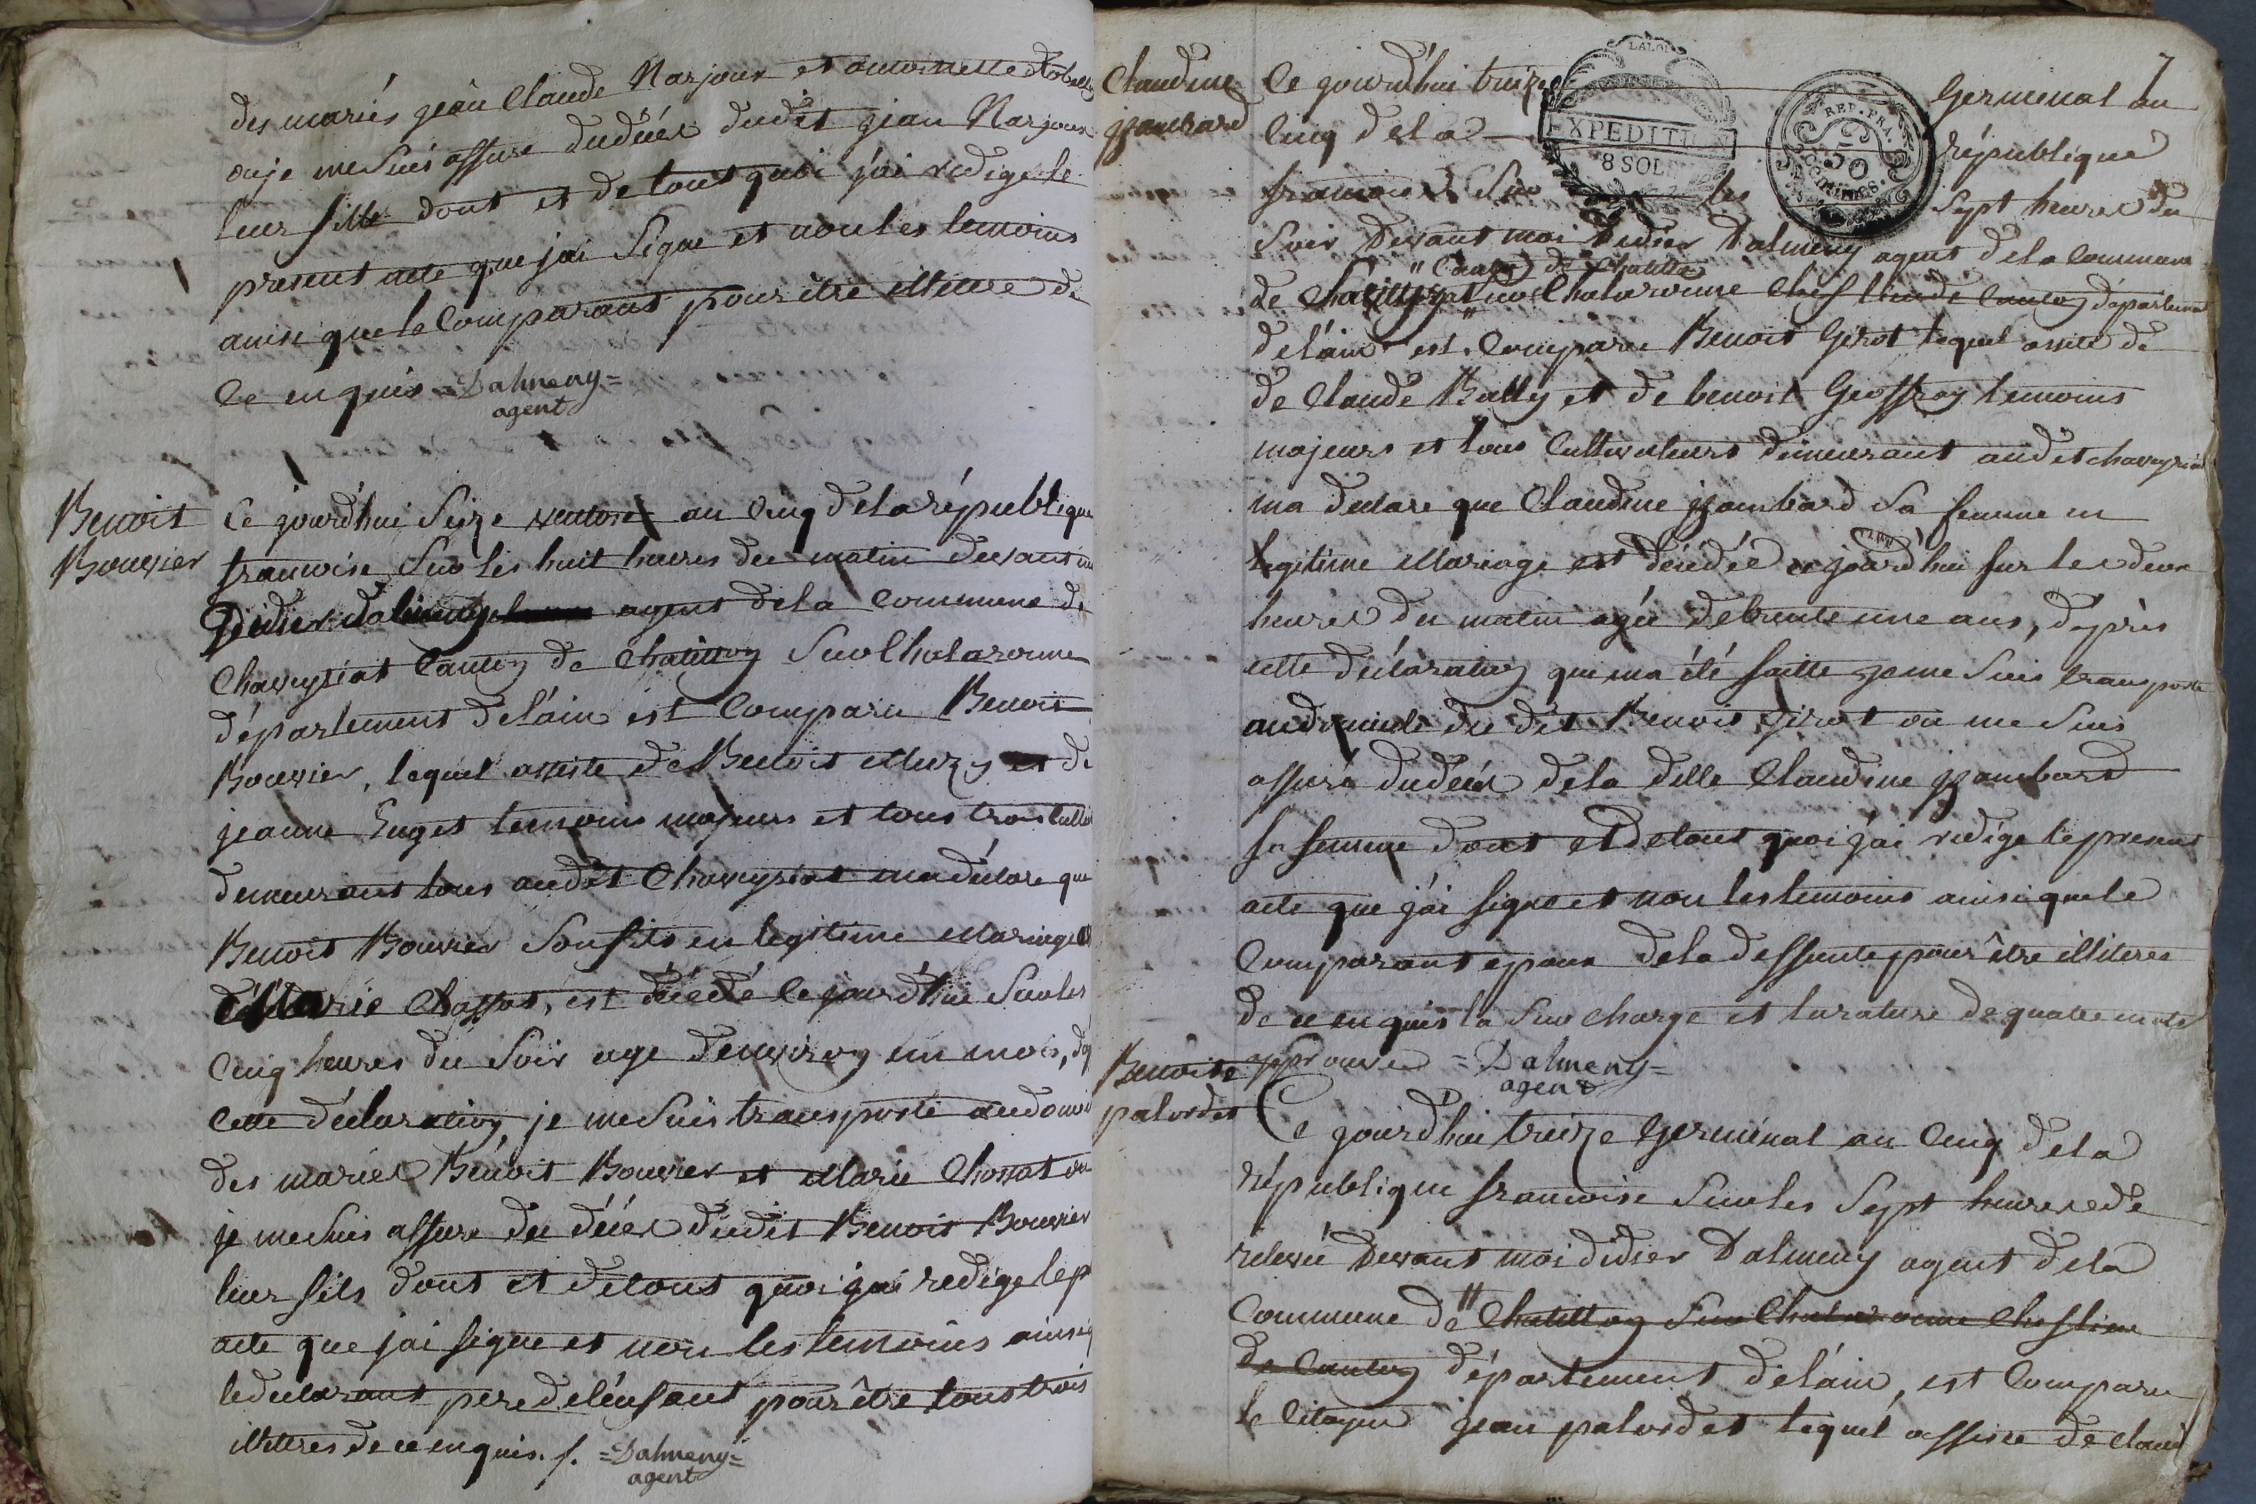 des mariés jean Claude Narjoux et antoinette
ou je me suis assure du décés dudit jean Narjoux
leur fille dont et de tout quoi j'ai redige le
present acte que j'ai signe et non les temoins
ainsi que le Comparant pour être illitere de
Ce enquis =Dalmeny=
agent
Benoit
Bouvier
Ce jourd'hui Seize ventose an Cinq de la républiqu
francoise Sur les huit heures du matin devant m
Didier dalmeny agent de la Commune de
Chaveyriat Canton de Chatillon Sur Chalaronne
département de l'ain est Comparu Benoit
Bouvier, lequel assiste de Benoit Muzy et de
jeanne Euget temoins majeurs et tous trois cultiv
demeurant tous audit Chaveyriat m'a déclare que
Benoit Bouvier Son fils en legitime Mariage
de Marie Chassat, est décédé Cejourd'hui Sur les
Cinq heures du Soir age d'environ un mois, d'ap
Cette déclaration, je me suis transporté au domi
des mariés Bénoit Bouvier et Marie Chossat ou
je me suis assure du décés dudit Benoit Bouvier
leur fils dont et de tout quoi j'ai redige le p
acte que j'ai signe et non les temoins ainsi q
le declarant pere de l'enfant pour être tous trois
illiteres de ce enquis. =Dalmeny=
agent
7
Claudine
jambard
LA LOI
EXPEDITION
8 SOLS
REP. FRA.
50
CENTIMES
Ce jourd'hui treize Germinal an
Cinq de la république
francoise Sur les Sept heures du
Soir Devant moi Didier Dalmeny agent de la Commune
" Canton de Chatillon
de Chaveyriat Sur Chalaronne Chef lieu de Canton département
de l'ain est Comparu Benoit Girot lequel assité de
de Claude Bally et de benoit Geoffray temoins
majeurs et tous Cultivateurs demeurant audit chaveyriat
ma declare que Claudine jambard Sa femme en
legitime Mariage est décédée cejourd'hui sur les deux
heures du matin agée de trente une ans, d'après
cette déclaration qui m'a été faitte je me Suis transporte
au domicile du dit Benoit Girot ou me suis
assuré du décés de la ditte Claudine jambard
sa femme dont et de tout quoi j'ai redige le present
acte que j'ai signe et non les temoins ainsi que le
Comparant epoux de la deffunte pour être illiteres
de ce enquis la Sur charge et la rature de quatre mots
approuve =Dalmeny=
agent
Benoite
paluvdet
Ce jourd'hui treize Germinal an Cinq de la
république francoise Sur les Sept heures de
relevée Devant moi didier Dalmeny agent de la
Commune de " Chatillon Sur Chalaronne Chef lieu
de Canton département de l'ain, est Comparu
le Citoyen jean paluvdet lequel assisté de claud